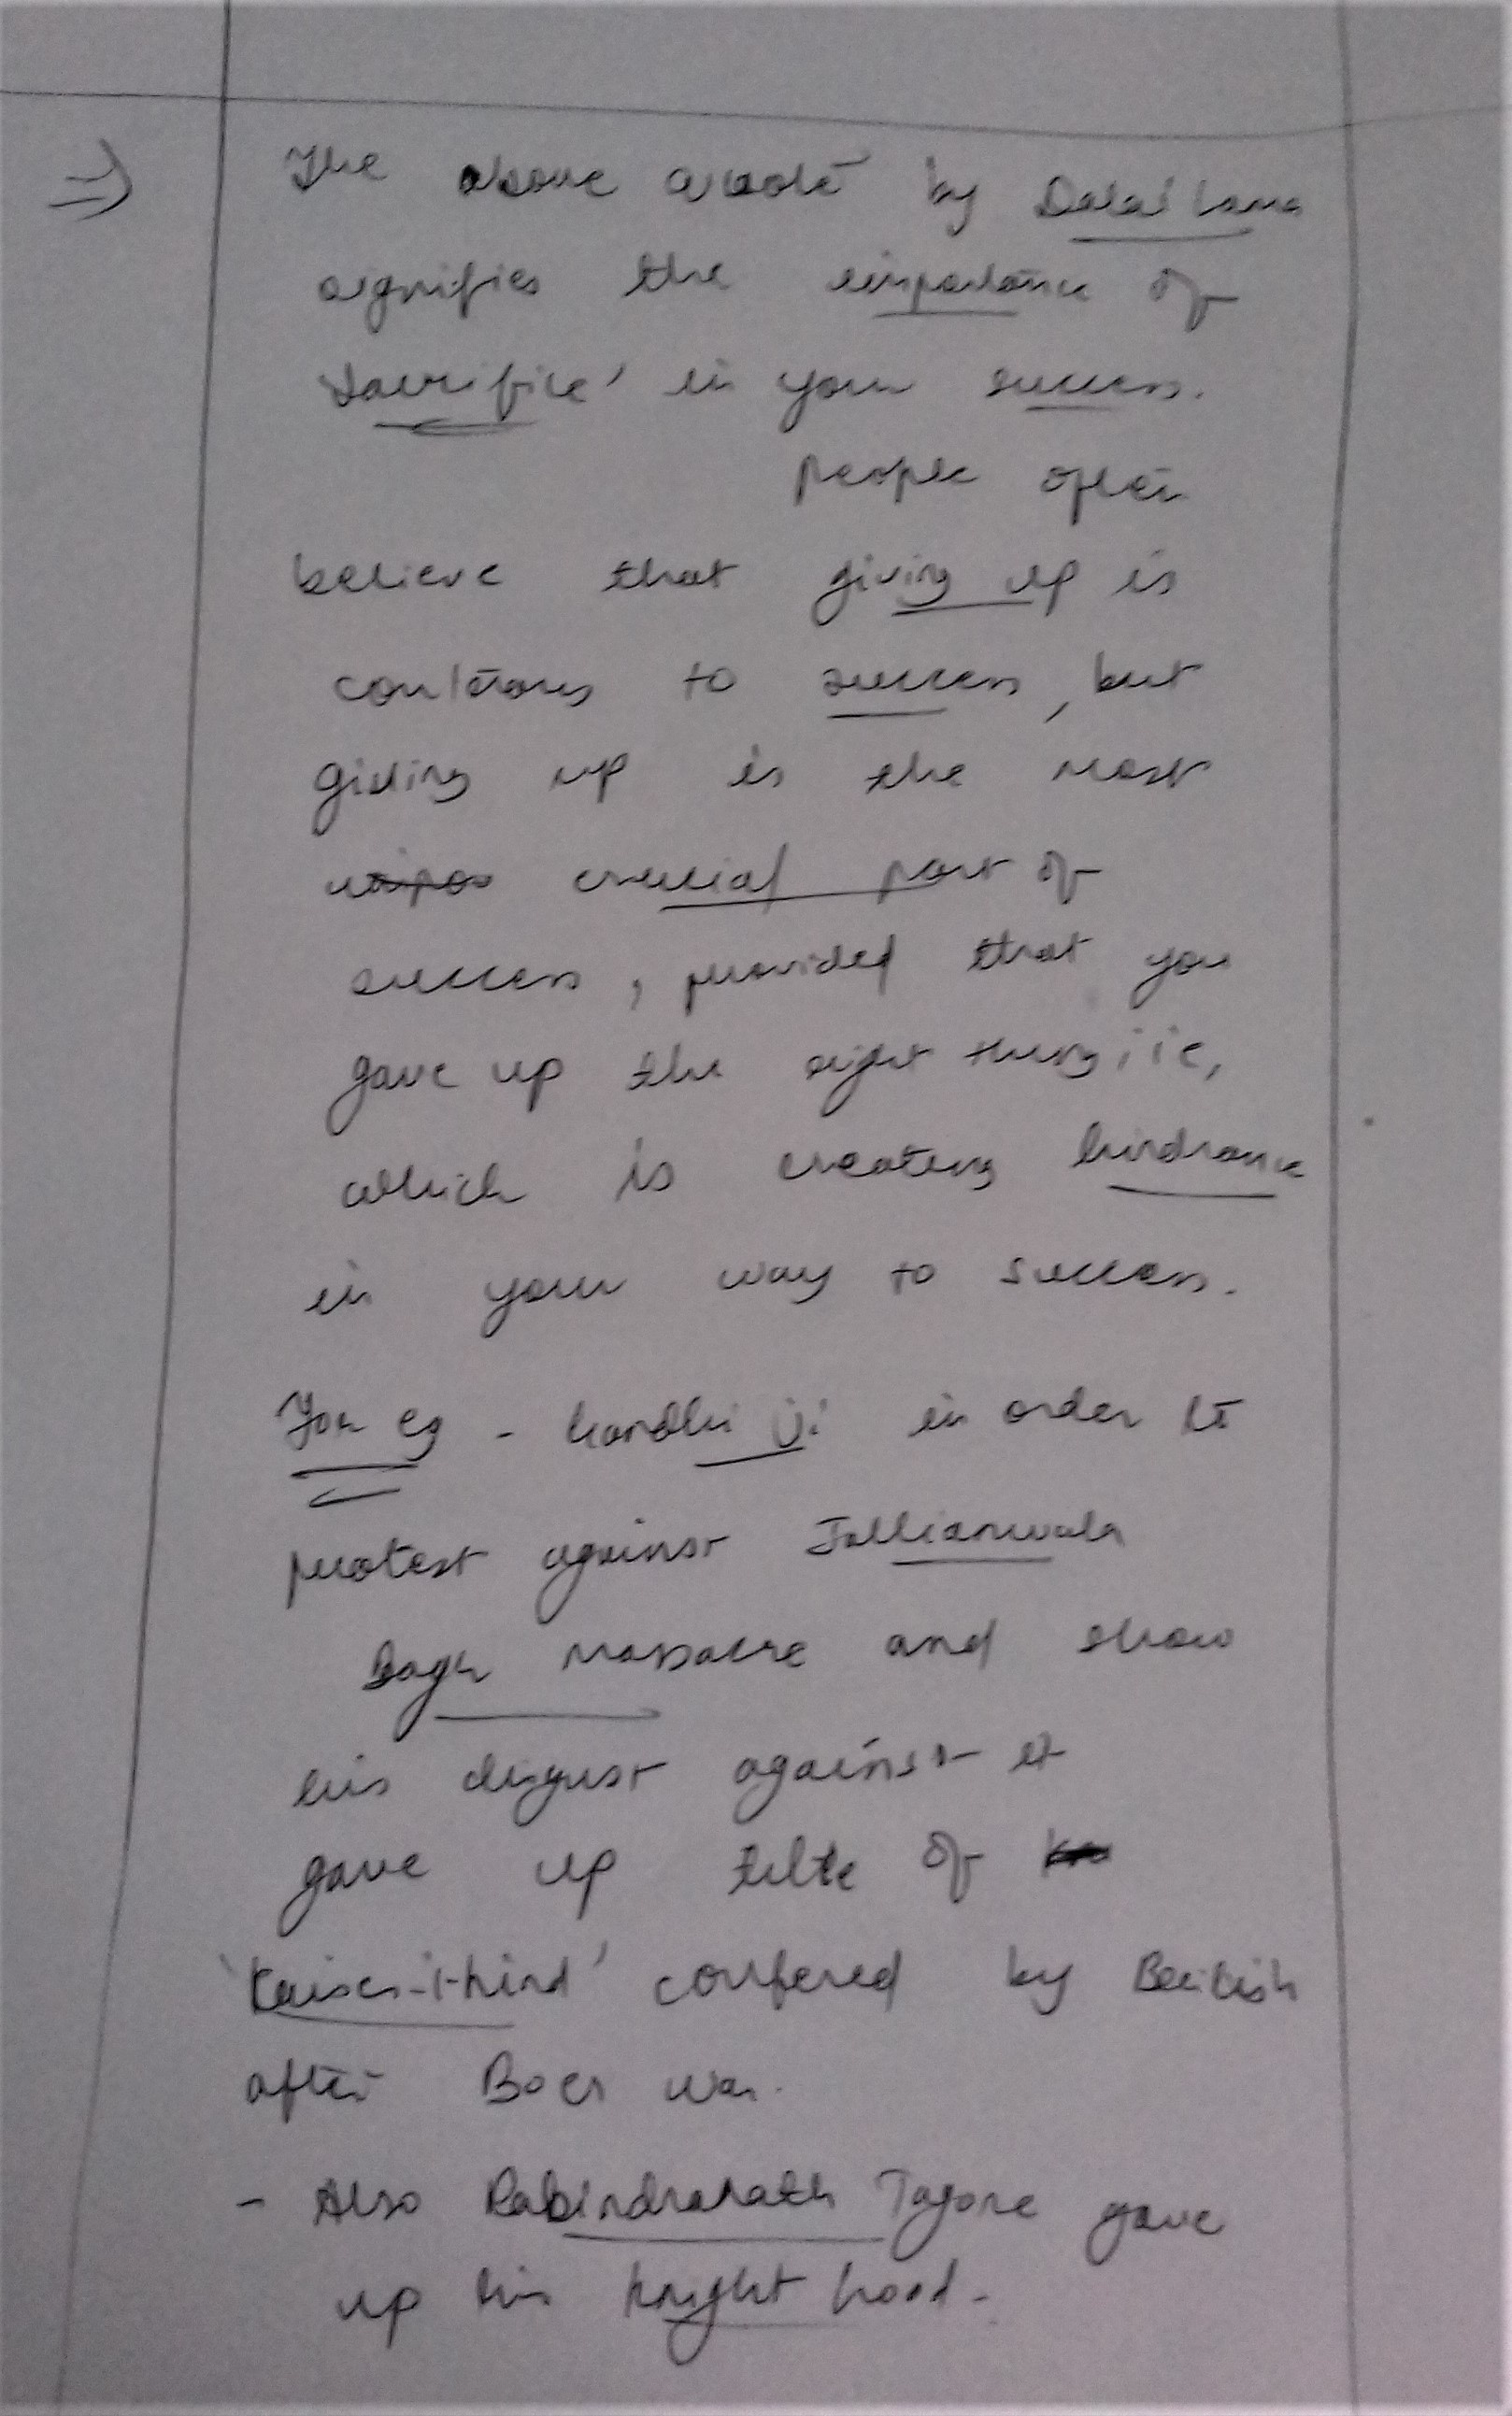 => The above Quote by Dalai Lama
signifies the importance of
sacrifice' in your success.
people often
believe that giving up is
contrary to success, but
giving up is the most
crucial part of
success, provided that you
gave up the right thing; ie,
which is creating hindrance
in your way to success.
For eg - Gandhi ji in order to
protest against Jallianwala
Bagh massacre and show
his disgust against it
gave up title of
'Kaiser-i-hind' confered by British
after Boer war.
- Also Rabindranath Tagore gave
up his knight hood.